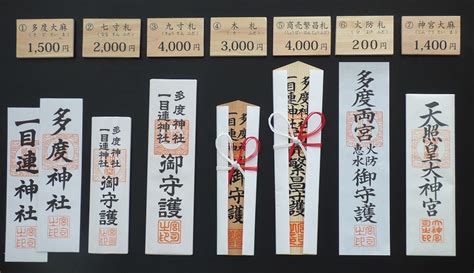 ① 多度大麻
1,500円
② 七寸札
2,000円
③ 九寸札
4,000円
④ 木札
3,000円
⑤ 商売繁昌札
4,000円
⑥ 火防札
200円
⑦ 神宮大麻
1,400円
一目連神社
多度神社
多度神社
一目連神社
御守護
多度神社
一目連神社
御守護
多度神社
一目連神社
御守護
多度神社
一目連神社
商売繁昌御守護
多度両宮
火防
恵水
御守護
天照皇大神宮